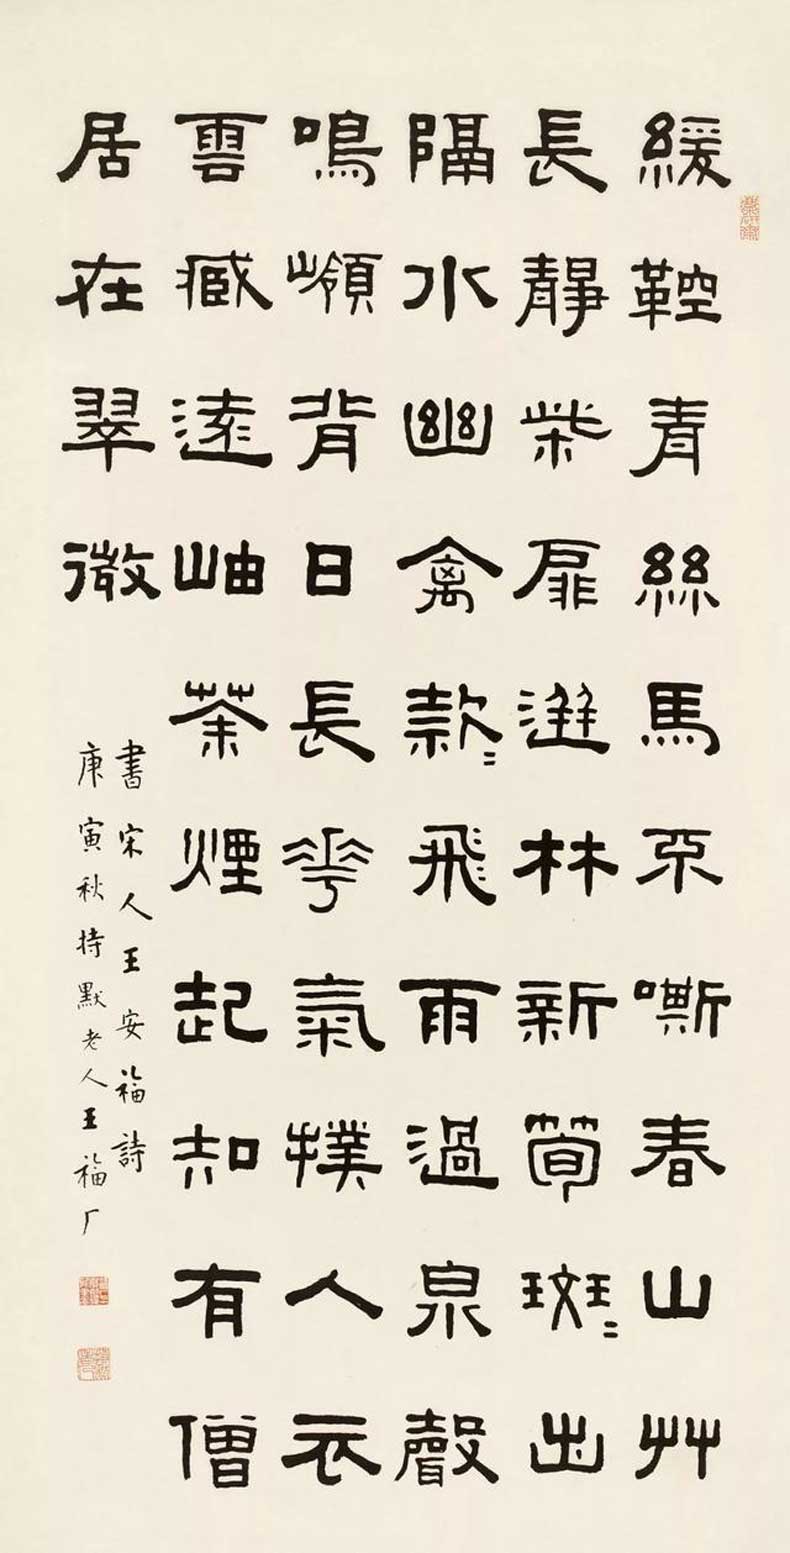 緩鞚青絲馬不嘶春山艸
長靜柴扉迸林新筍斑〻出
隔水幽禽款〻飛雨過泉聲
鳴嶺背日長華氣撲人衣
雲臧遠岫茶煙起知有僧
居在翠微
書宋人王安福詩
庚寅秋持默老人王福厂